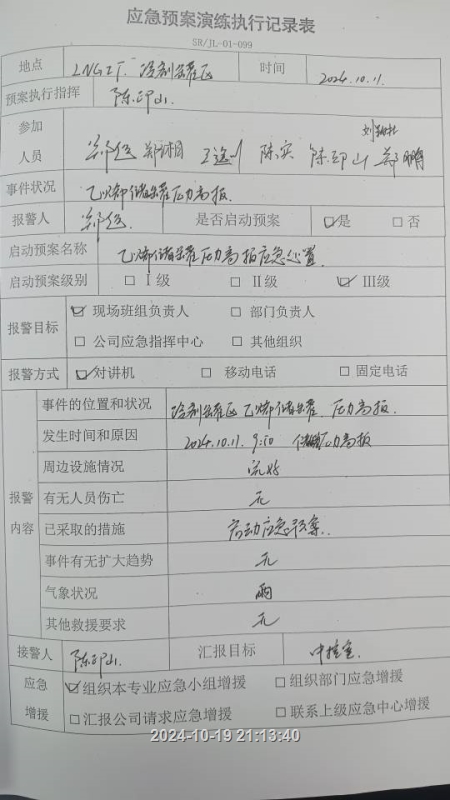 应急预案演练执行记录表
SR/JL-01-099
地点 LNG工厂. 冷剂罐区 时间 2024.10.11.
预案执行指挥 陈印山.
参加
人员 陈实 陈印山
事件状况 乙烯储罐压力高报.
报警人 是否启动预案 ☑是 □否
启动预案名称 乙烯储罐压力高报应急处置
启动预案级别 □Ⅰ级 □Ⅱ级 ☑Ⅲ级
报警目标 ☑现场班组负责人 □部门负责人
□公司应急指挥中心 □其他组织
报警方式 ☑对讲机 □移动电话 □固定电话
报警内容
事件的位置和状况 冷剂罐区乙烯储罐 压力高报.
发生时间和原因 2024.10.11. 9:50 压力高报
周边设施情况 完好
有无人员伤亡 无
已采取的措施 启动应急预案.
事件有无扩大趋势 无
气象状况 雨
其他救援要求 无
接警人 陈印山. 汇报目标 中控室
应急增援 ☑组织本专业应急小组增援 □组织部门应急增援
□汇报公司请求应急增援 □联系上级应急中心增援
2024-10-19 21:13:40